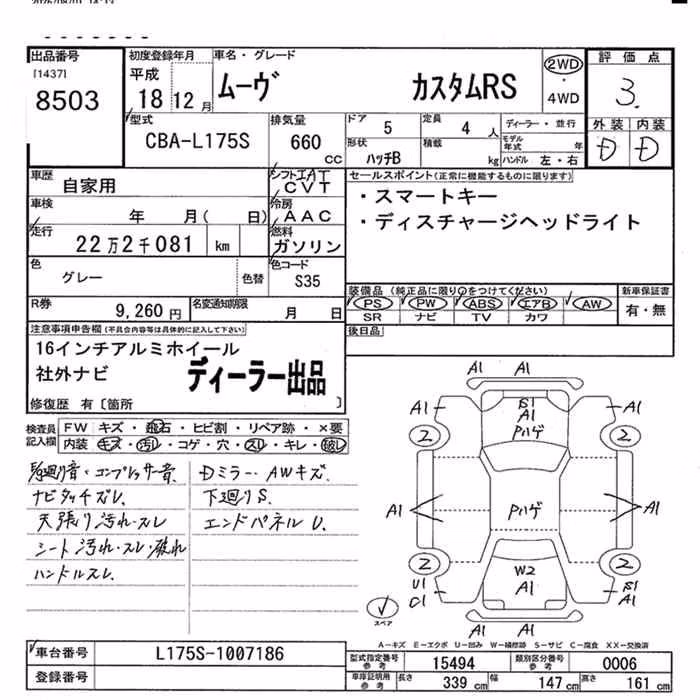 出品番号
[1437]
8503
初度登録年月
平成
18 12 月
車名・グレード
ムーヴ カスタムRS
2WD
・
4WD
評価点
3.
外装 内装
D D
型式
CBA-L175S
排気量
660
CC
ドア
5
定員
4 人
ディーラー・並行
形状
ハッチB
積載
kg
モデル年式 年
ハンドル 左・右
車歴
自家用
シフト
CVT
車検
年 月( 日)
冷房
AAC
走行
22万2千081 km
燃料
ガソリン
色
グレー
色替
色コード
S35
R券
9,260 円
名変通知期限
月 日
セールスポイント(正常に機能するものに限ります)
・スマートキー
・ディスチャージヘッドライト
装備品(純正品に限り○をつけてください)
PS PW ABS エアB AW
SR ナビ TV カワ
新車保証書
有・無
後日品
注意事項申告欄(不具合内容等は具体的に記入して下さい)
16インチアルミホイール
社外ナビ
ディーラー出品
修復歴 有〔箇所 〕
検査員記入欄
FW キズ・飛石・ヒビ割・リペア跡・×要
内装 キズ・汚レ・コゲ・穴・スレ・キレ・破レ
ナビタッチズレ、
天張り汚れ・スレ
シート汚れ・スレ・破れ
ハンドルスレ、
Dミラー・AWキズ、
下廻りS、
エンドパネルU、
A1 A1
A1 A1
B1
A1
Pハゲ
2 2
A1 Pハゲ A1
2 2
W2
A1
U1
C1
B1
A1
A1 A1
スペア
A-キズ E-エクボ U-凹み W-補修跡 S-サビ C-腐食 XX-交換済
車台番号
L175S-1007186
登録番号
型式指定番号
参考
15494
類別区分番号
参考
0006
車庫証明用
参考
長さ 339 cm
幅 147 cm
高さ 161 cm